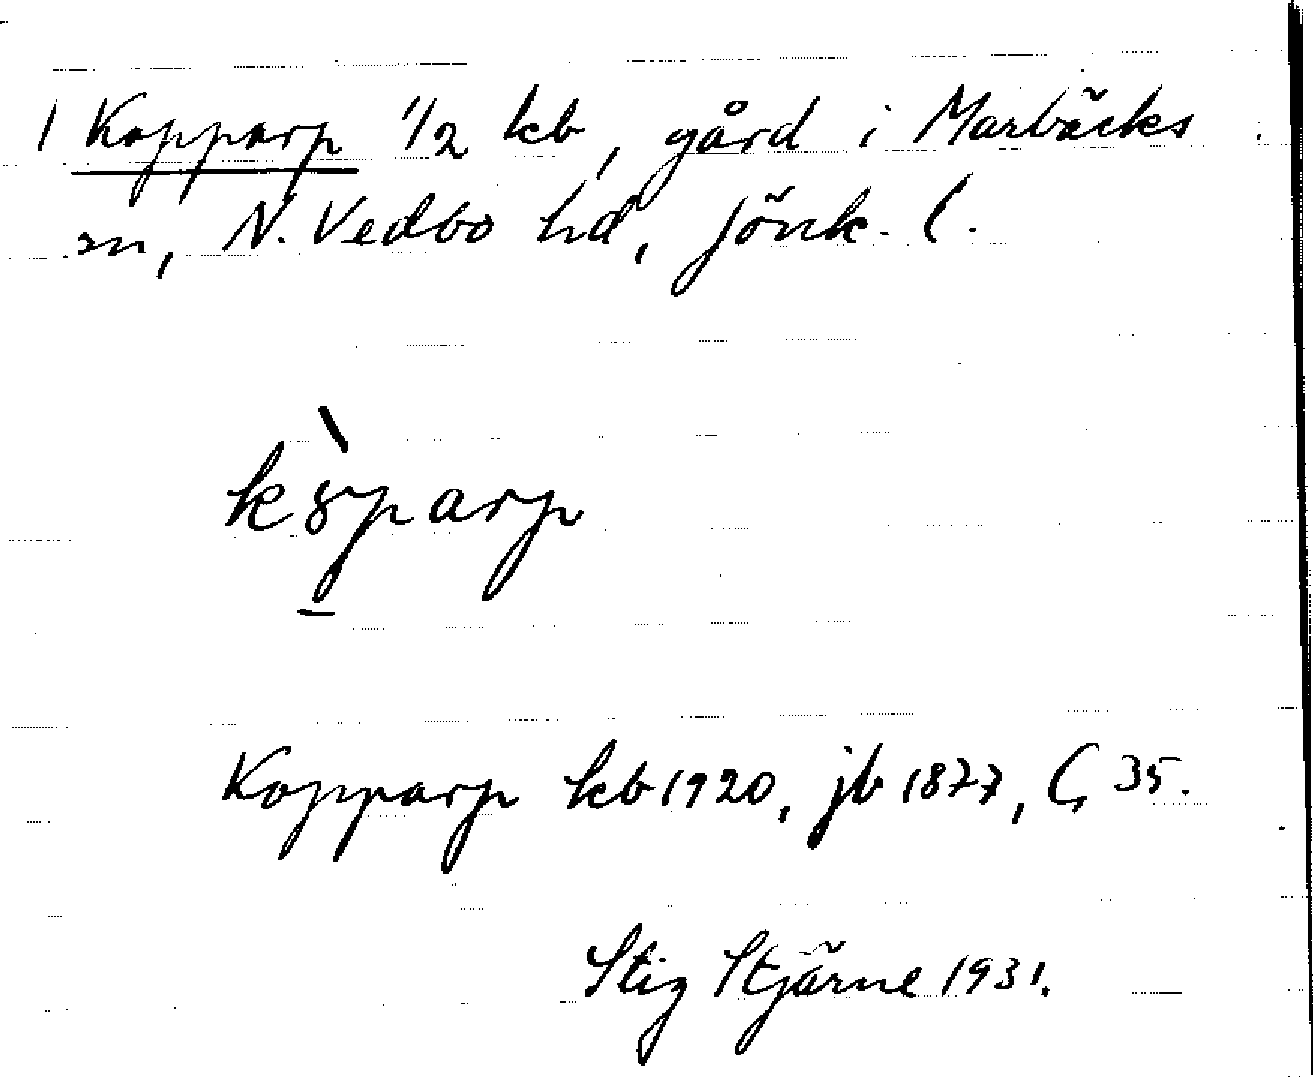 1 Kopparp 1/2 kb, gård i Marbäcks
sn, N. Vedbo hd, Jönk. l.
kòparp
Kopparp kb 1920, jb 1877, G 35.
Stig Stjärne 1931.